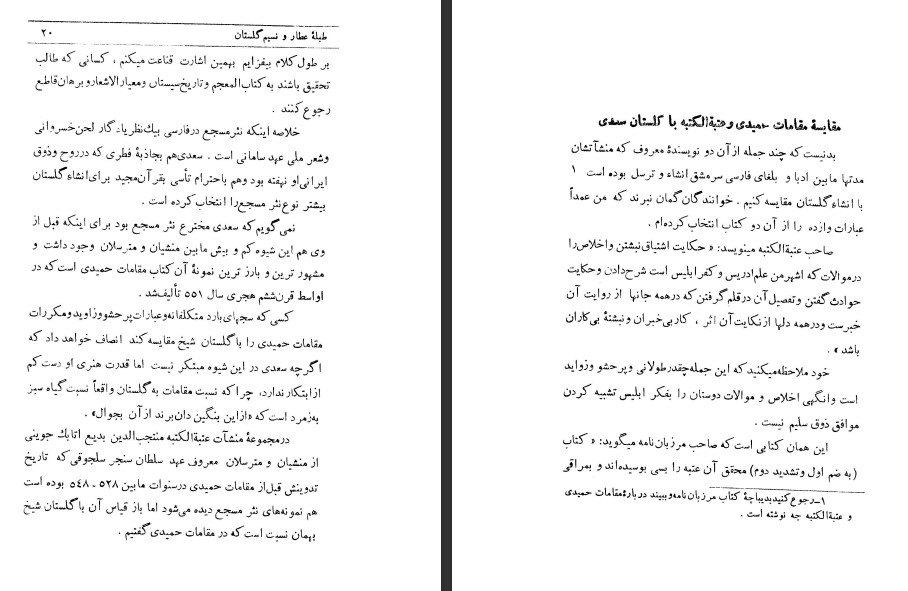 طبلهٔ عطار و نسیم گلستان ۲۰
بر طول کلام بیفزایم بهمین اشارت قناعت میکنم ، کسانی که طالب
تحقیق باشند به کتاب المعجم و تاریخ سیستان و معیار الاشعار و برهان قاطع
رجوع کنند .
خلاصه اینکه نثر مسجع در فارسی بیك نظر یادگار لحن خسروانی
و شعر ملی عهد سامانی است . سعدی هم بجاذبهٔ فطری که در روح و ذوق
ایرانی او نهفته بود و هم باحترام تأسی بقرآن مجید برای انشاء گلستان
بیشتر نوع نثر مسجع را انتخاب کرده است .
نمی گویم که سعدی مخترع نثر مسجع بود برای اینکه قبل از
وی هم این شیوه کم و بیش ما بین منشیان و مترسلان وجود داشت و
مشهور ترین و بارز ترین نمونهٔ آن کتاب مقامات حمیدی است که در
اواسط قرن ششم هجری سال ۵۵۱ تألیف شد .
کسی که سجهای بارد متکلفانه و عبارات پر حشو و زاوید و مکررات
مقامات حمیدی را با گلستان شیخ مقایسه کند انصاف خواهد داد که
اگر چه سعدی در این شیوه مبتکر نیست اما قدرت هنری او دست کم
از ابتکار ندارد، چرا که نسبت مقامات به گلستان واقعاً نسبت گیاه سبز
به زمرد است که «از این بنگین دان برند از آن بجوال» .
در مجموعهٔ منشآت عتبة الکتبه منتجب الدین بدیع اتابك جوینی
از منشیان و مترسلان معروف عهد سلطان سنجر سلجوقی که تاریخ
تدوینش قبل از مقامات حمیدی در سنوات ما بین ۵۲۸ ـ ۵۴۸ بوده است
هم نمونه‌های نثر مسجع دیده می‌شود اما باز قیاس آن با گلستان شیخ
بهمان نسبت است که در مقامات حمیدی گفتیم .
مقایسهٔ مقامات حمیدی و عتبة الکتبه با گلستان سعدی
بد نیست که چند جمله از آن دو نویسندهٔ معروف که منشآتشان
مدتها ما بین ادبا و بلغای فارسی سرمشق انشاء و ترسل بوده است ۱
با انشاء گلستان مقایسه کنیم . خوانندگان گمان نبرند که من عمداً
عبارات وازده را از آن دو کتاب انتخاب کرده‌ام .
صاحب عتبة الکتبه مینویسد: « حکایت اشتیاق نبشتن و اخلاص را
در موالات که اشهر من علم ادریس و کفر ابلیس است شرح دادن و حکایت
حوادث گفتن و تفصیل آن در قلم گرفتن که در همه جانها از روایت آن
خبرست و در همه دلها از نکایت آن اثر ، کار بی خبران و نبشتهٔ بی کاران
باشد » .
خود ملاحظه میکنید که این جمله چقدر طولانی و پر حشو و زواید
است و انگهی اخلاص و موالات دوستان را بفکر ابلیس تشبیه کردن
موافق ذوق سلیم نیست .
این همان کتابی است که صاحب مرزبان نامه میگوید: « کتاب
(به ضم اول و تشدید دوم) محقق آن عتبه را بسی بوسیده‌اند و بمراقی
۱ـ رجوع کنید بدیباچهٔ کتاب مرزبان نامه و ببیند در بارهٔ مقامات حمیدی
و عتبة الکتبه چه نوشته است .